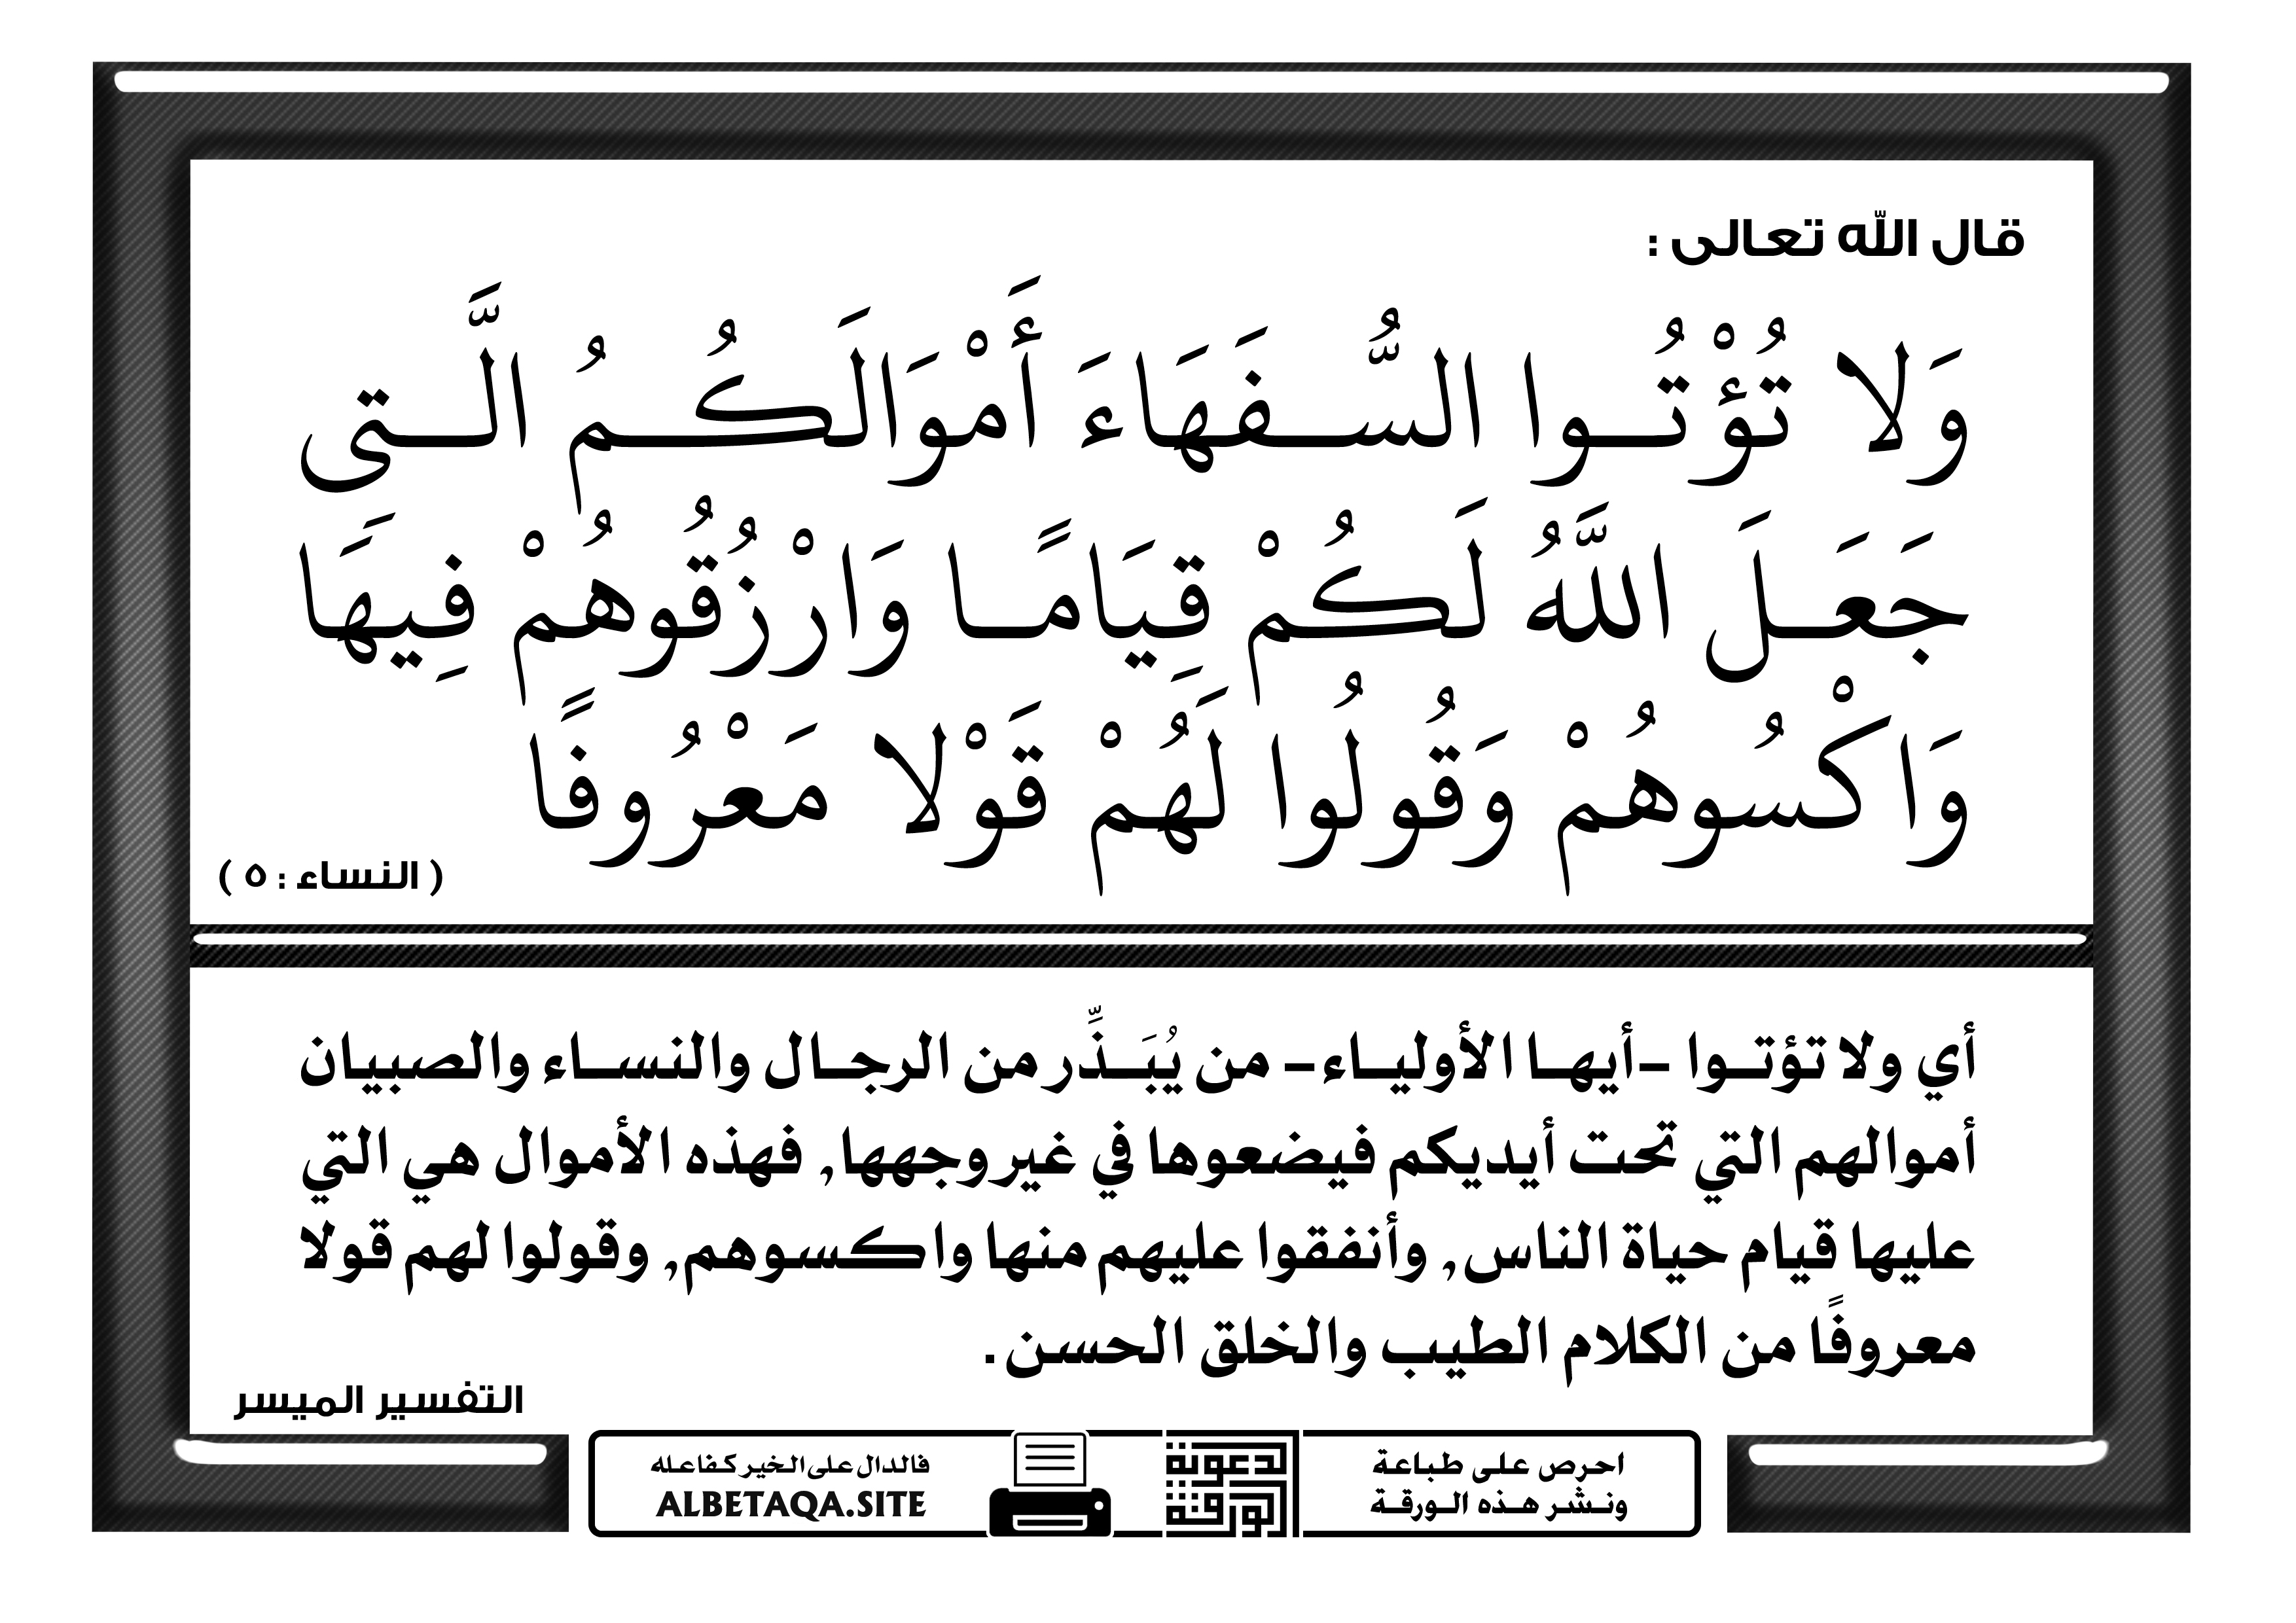 قال الله تعالى :
وَلَا تُؤْتُوا السُّفَهَاءَ أَمْوَالَكُمُ الَّتِي
جَعَلَ اللَّهُ لَكُمْ قِيَامًا وَارْزُقُوهُمْ فِيهَا
وَاكْسُوهُمْ وَقُولُوا لَهُمْ قَوْلًا مَعْرُوفًا
( النساء : ٥ )
أي ولا تؤتوا -أيها الأولياء- من يُبَذِّر من الرجال والنساء والصبيان
أموالهم التي تحت أيديكم فيضعوها في غير وجهها, فهذه الأموال هي التي
عليها قيام حياة الناس, وأنفقوا عليهم منها واكسوهم, وقولوا لهم قولا
معروفًا من الكلام الطيب والخلق الحسن.
التفسير الميسر
احرص على طباعة
ونشر هذه الورقة
فالدال على الخير كفاعله
ALBETAQA.SITE